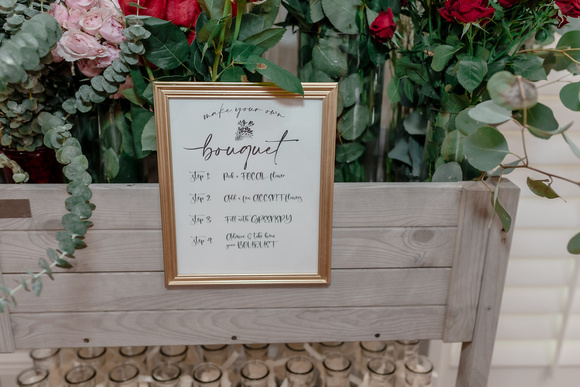 make your own
bouquet
Step 1: Pick a FOCAL flower
Step 2: Add a few ACCENT flowers
Step 3: Fill with GREENERY
Step 4: Admire & take home
your BOUQUET